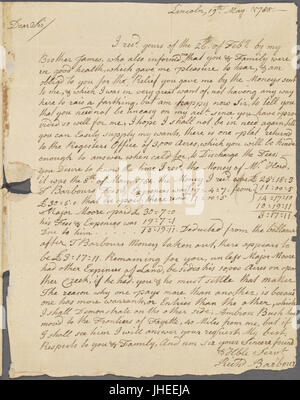 Lincoln, 19th May 1785
Dear Sir,
I recd. yours of the 2d. of Feby. by my
Brother James, who also informed that you & Family were
in good health, which gave me pleasure to hear, & am
obliged to you for the Relief you gave me by the Money sent
to me, & which I was in very great want of, not having any way
here to raise a farthing, but am happy now Sir, to tell you
that you need not be uneasy on my acct. since you have provi
ded so well for me. I hope I shall not be in need again, till
you can Easily supply my wants, there is one plat returned
to the Registers Office of 3,000 Acres, which you will be kind
enough to answer when call for, to Discharge the Fees
you Desire to know the time I recd. the Money of Mr.
it was the
T Barbours
£30..5..6
Major Moore paid £
his Fees & Expences was
Due to him 13..19..11. Deducted from the ballance
after T Barbours Money taken out, there appears to
be £3..17..11. Remaining for you, unless Major Moore
had other Expences of Land, besides his 1000 Acres on pan
ther Creek, if he has, you & he must settle that matter
The reason why one pays more than another, is because
one has more warrants, or Entries than the other, which
I shall Demonstrate on the other side, Ambrose Bush has
moved to the Frontiers of Fayette, 40 Miles from me, but if
I shall see him I will answer your request, My best
Respects to you & Family, And am Sir your Sincere friend
& Hble Servt.
Barbour
alamy
alamy stock photo
JHEEJA